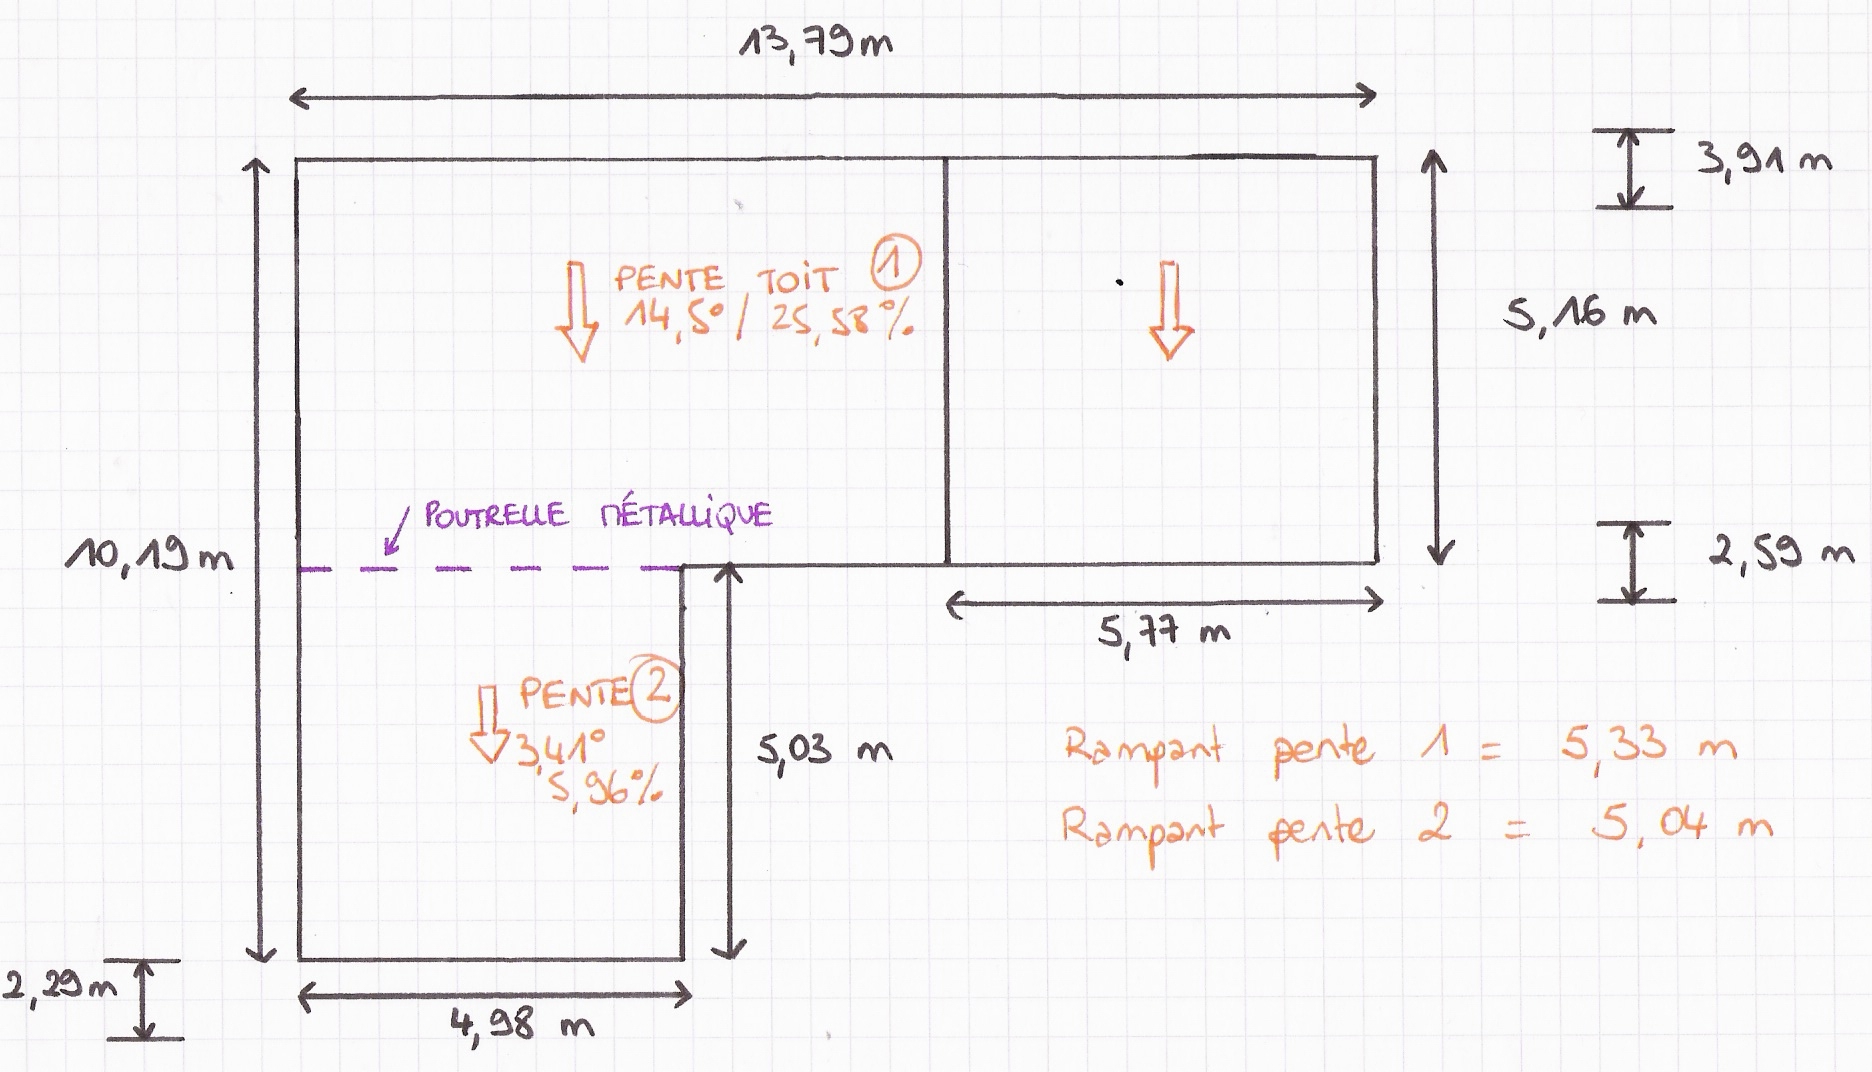 13,79m
3,91 m
PENTE TOIT 1
14,5° / 25,58%
5,16 m
POUTRELLE MÉTALLIQUE
10,19m
2,59 m
5,77 m
PENTE 2
3,41°
5,96%
5,03 m
Rampant pente 1 = 5,33 m
Rampant pente 2 = 5,04 m
2,29m
4,98 m